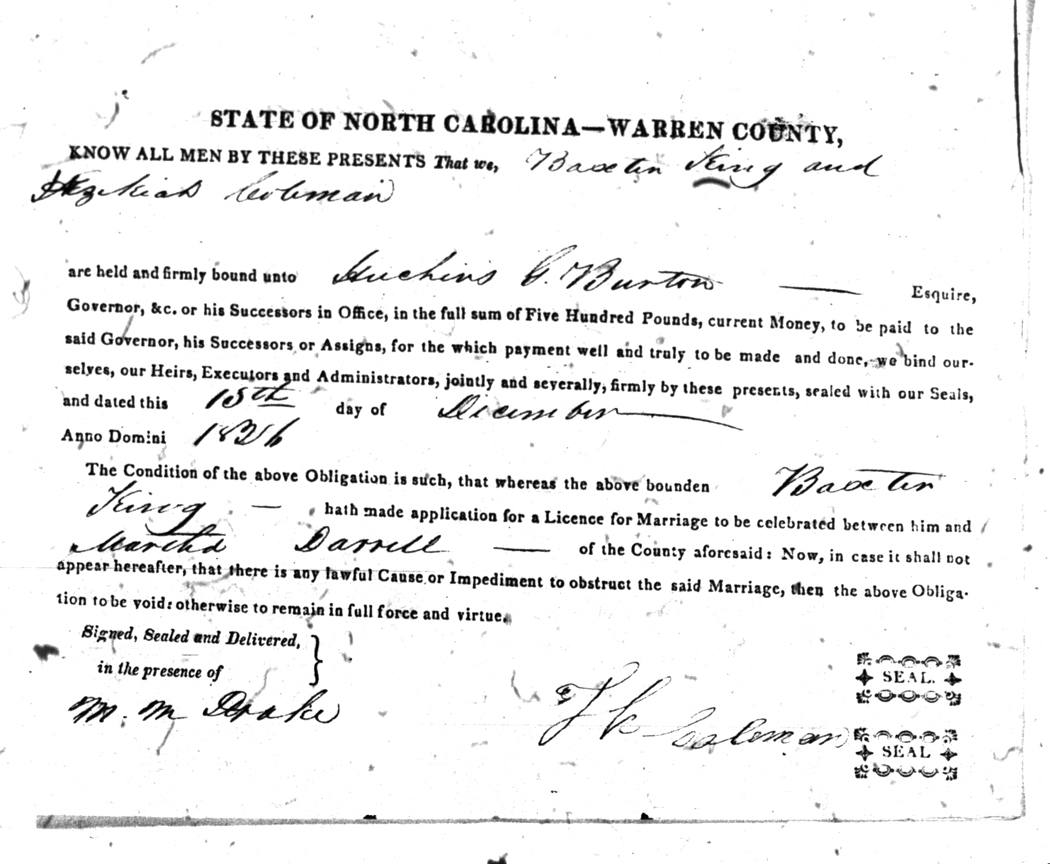 STATE OF NORTH CAROLINA—WARREN COUNTY,
KNOW ALL MEN BY THESE PRESENTS That we, Baxter King and
Hezekiah Coleman
are held and firmly bound unto Huchins G. Burton — Esquire,
Governor, &c. or his Successors in Office, in the full sum of Five Hundred Pounds, current Money, to be paid to the
said Governor, his Successors or Assigns, for the which payment well and truly to be made and done, we bind our-
selves, our Heirs, Executors and Administrators, jointly and severally, firmly by these presents, sealed with our Seals,
and dated this 15th day of December
Anno Domini 1826
The Condition of the above Obligation is such, that whereas the above bounden Baxter
King — hath made application for a Licence for Marriage to be celebrated between him and
Martha Darrell — of the County aforesaid: Now, in case it shall not
appear hereafter, that there is any lawful Cause or Impediment to obstruct the said Marriage, then the above Obliga-
tion to be void: otherwise to remain in full force and virtue.
Signed, Sealed and Delivered,
in the presence of
SEAL.
M. M Drake
Coleman
SEAL